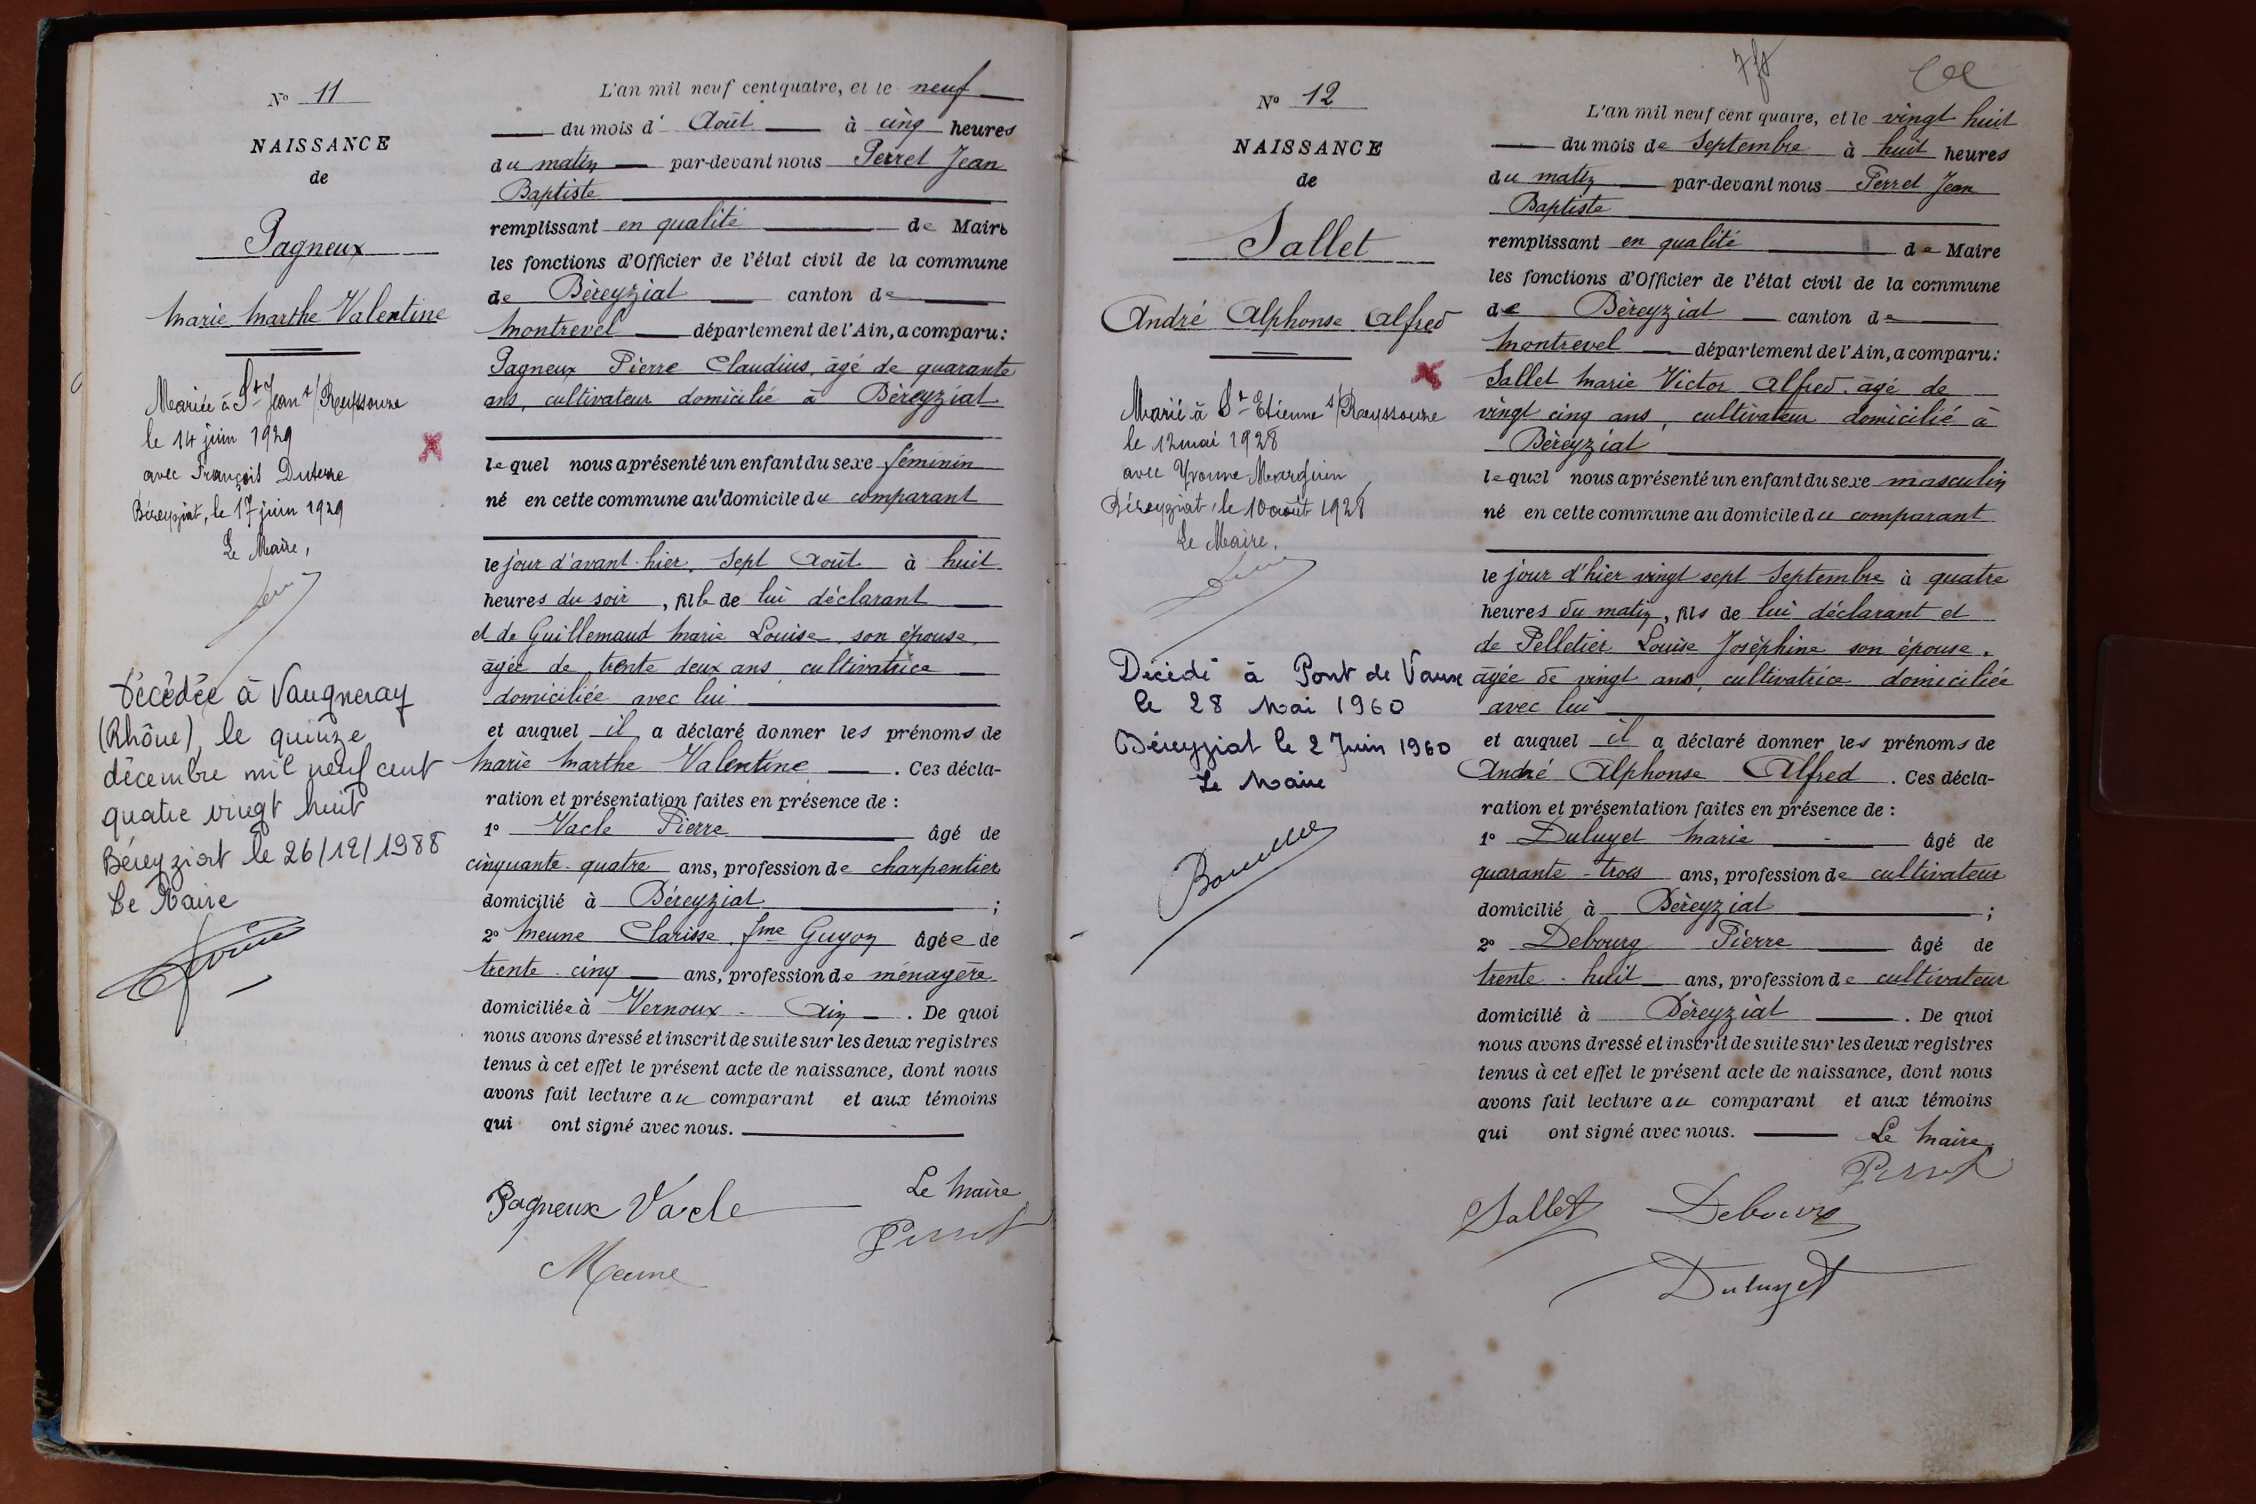 N° 11
NAISSANCE
de
Pagneux
Marie Marthe Valentine
Mariée à St Jean s/Reyssouze
le 14 juin 1929
avec François Duterne
Béreyziat, le 17 juin 1929
Le Maire,
Décédée à Vaugneray
(Rhône), le quinze
décembre mil neuf cent
quatre vingt huit
Béreyziat le 26/12/1988
Le Maire
L'an mil neuf cent quatre, et le neuf
du mois d' Août à cinq heures
du matin par-devant nous Perret Jean
Baptiste
remplissant en qualité de Maire
les fonctions d'Officier de l'état civil de la commune
de Bèreyziat canton de
Montrevel département de l'Ain, a comparu :
Pagneux Pierre Claudius, âgé de quarante
ans, cultivateur domicilié à Bèreyziat
lequel nous a présenté un enfant du sexe féminin
né en cette commune au domicile du comparant
le jour d'avant-hier, sept Août à huit
heures du soir, fille de lui déclarant
et de Guillemaud Marie Louise, son épouse,
âgée de trente deux ans, cultivatrice
domiciliée avec lui
et auquel il a déclaré donner les prénoms de
Marie Marthe Valentine. Ces décla-
ration et présentation faites en présence de :
1° Vacle Pierre âgé de
cinquante-quatre ans, profession de charpentier
domicilié à Béreyziat ;
2° Meune Clarisse, fme Guyon âgée de
trente-cinq ans, profession de ménagère
domiciliée à Vernoux - Ain. De quoi
nous avons dressé et inscrit de suite sur les deux registres
tenus à cet effet le présent acte de naissance, dont nous
avons fait lecture au comparant et aux témoins
qui ont signé avec nous.
Le Maire
Pagneux Vacle
Perret
Meune
N° 12
NAISSANCE
de
Sallet
André Alphonse Alfred
Marié à St Etienne s/Reyssouze
le 12 mai 1928
avec Yvonne Marguin
Béreyziat, le 10 août 1928
Le Maire,
Décédé à Pont de Vaux
le 28 Mai 1960
Béreyziat le 2 Juin 1960
Le Maire
L'an mil neuf cent quatre, et le vingt huit
du mois de Septembre à huit heures
du matin par-devant nous Perret Jean
Baptiste
remplissant en qualité de Maire
les fonctions d'Officier de l'état civil de la commune
de Bèreyziat canton de
Montrevel département de l'Ain, a comparu :
Sallet Marie Victor Alfred âgé de
vingt cinq ans, cultivateur domicilié à
Bèreyziat
lequel nous a présenté un enfant du sexe masculin
né en cette commune au domicile du comparant
le jour d'hier vingt sept Septembre à quatre
heures du matin, fils de lui déclarant et
de Pelletier Louise Joséphine son épouse,
âgée de vingt ans, cultivatrice domiciliée
avec lui
et auquel il a déclaré donner les prénoms de
André Alphonse Alfred. Ces décla-
ration et présentation faites en présence de :
1° Duluyet Marie âgé de
quarante-trois ans, profession de cultivateur
domicilié à Bèreyziat ;
2° Debourg Pierre âgé de
trente-huit ans, profession de cultivateur
domicilié à Bèreyziat. De quoi
nous avons dressé et inscrit de suite sur les deux registres
tenus à cet effet le présent acte de naissance, dont nous
avons fait lecture au comparant et aux témoins
qui ont signé avec nous. Le Maire
Perret
Sallet Debourg
Duluyet